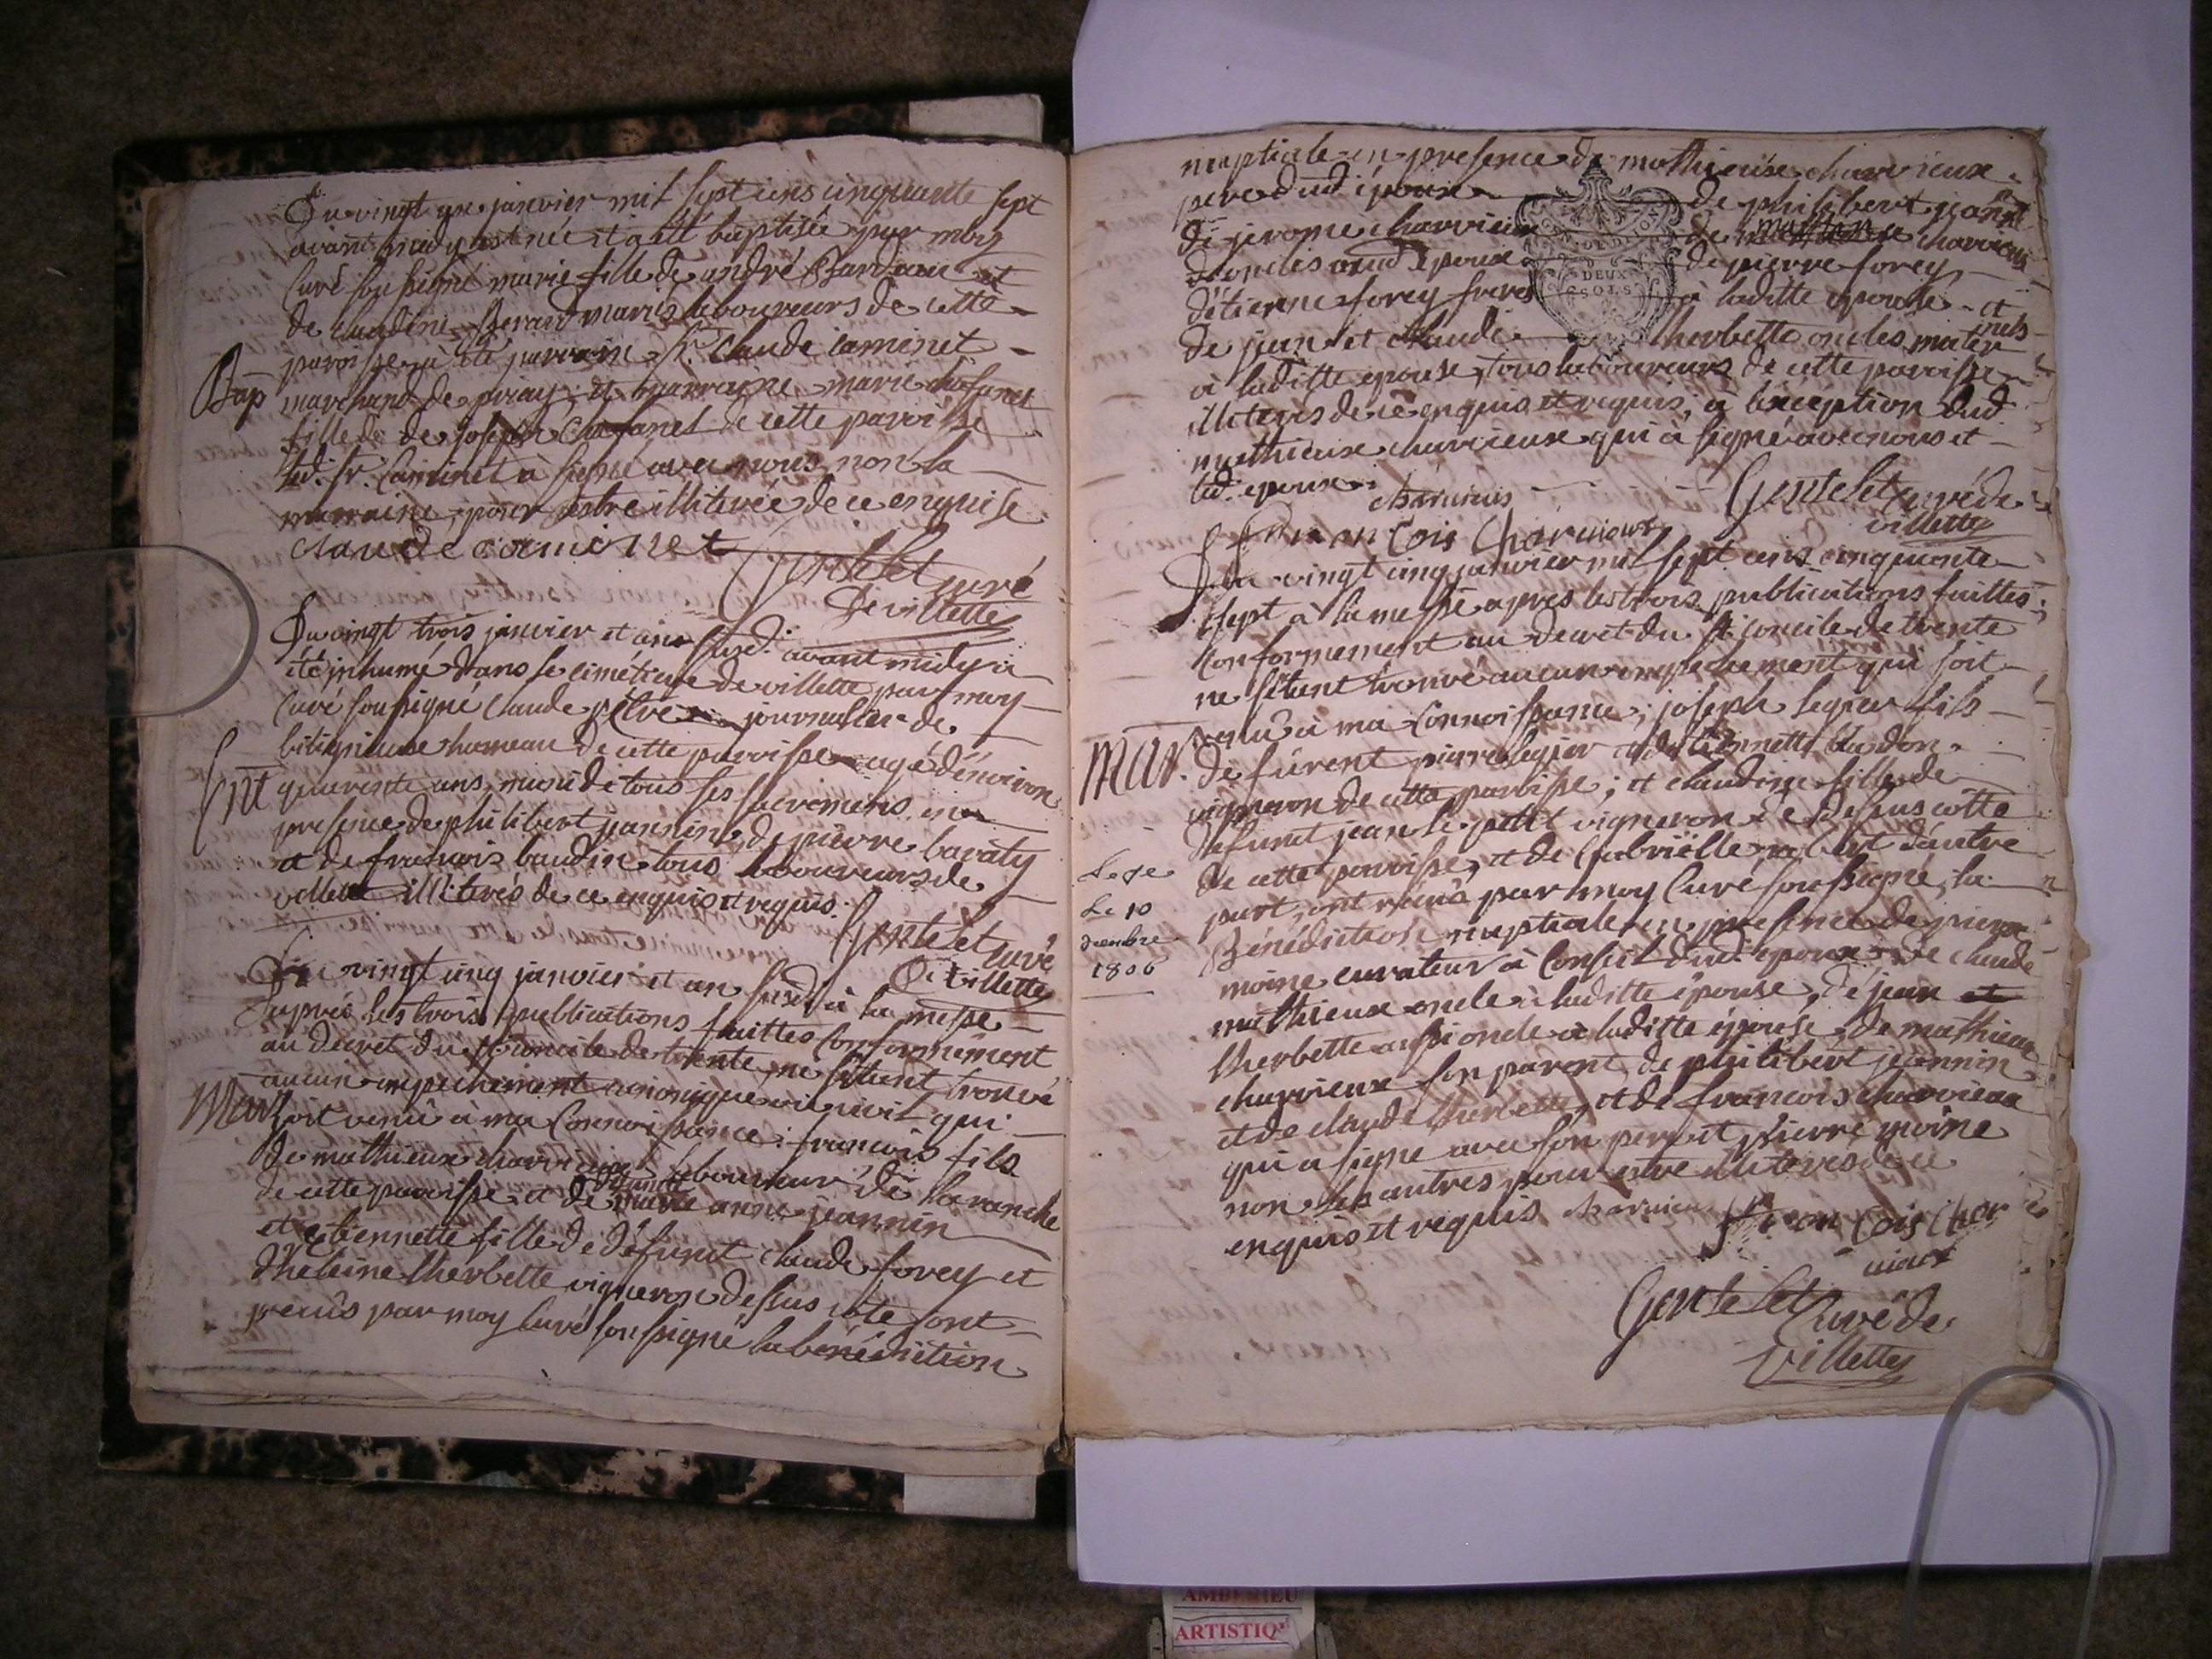 Du vingt un janvier mil sept cens cinquante sept
avant midy est née et a été baptisée par moy
Curé soussigné marie fille de andré Bardeau et
de claudine Berard mariés laboureurs de cette
paroisse a été parrain Sr. Claude Caminet
Bap marchand de priay et marraine marie
fille de de Joseph de cette paroisse
led. Sr. Caminet à signé avec nous non la
marraine pour estre illiterée de ce enquise
claude caminet
Gentelet curé
De villette
Du vingt trois janvier et an susd. avant midy a
été inhumé dans le cimétiere de villette par moy
Curé soussigné Claude journalier de
bitignieux hameau de cette paroisse agé d'environ
Ent quarente ans, muni de tous ses sacremens en
presence de philibert jeannin, de pierre baraty
et de francois baudin tous laboureurs de
villette illiterés de ce enquis et requis.
Gentelet curé
De villette
Du vingt cinq janvier et an susd. à la messe
apprés les trois publications faittes Conformément
au décret du St concile de trente, ne s'étant trouvé
aucun empechement canonique ni civil qui
Mar soit venu a ma Connoissance; francois fils
de mathieux charvieux laboureur de la ranche
de cette paroisse et de claude marie anne jeannin
et etiennette fille de défunt claude forey et
d'heleine lherbette vigneron dessus côte sont
recûs par moy Curé soussigné la bénédiction
nuptiale en presence de mathieüx charvieux
pere dud époux de philibert jeann
de jerome charvieux de mathieu charvieux
oncles aud époux de pierre forey
d'étienne forey freres à laditte epouse et
de jean et Claude lherbette oncles mater
nels
à laditte epouse, tous laboureurs de cette paroisse
illiterés de ce enquis et requis, à l'exception dud
mathieux charvieux qui à signé avec nous et
led. epoux.
charvieux
Gentelet curé de
villette
francois Charvieux
Du vingt cinq janvier mil sept cens cinquante
sept à la messe apres les trois publications faittes
Conformement au decret du St concile de trente
ne s'étant trouvé aucun empechement qui soit
venu à ma Connoissance; joseph legier fils
Mar. de fûrent pierre legier et de etiennette
vigneron de cette paroisse; et claudine fille de
defunt jean le petit vigneron de dessus côtte
de cette paroisse, et de Gabriëlle d'autre
part, ont recûs par moy Curé soussigné la
Bénédiction nuptiale en presence de pierre
moine curateur à Conseil dud epoux de claude
mathieux oncle à laditte épouse, de jean et
lherbette aussi oncle a laditte épouse, de mathieux
charvieux son parent, de philibért jeannin
et de claude lherbette, et de francois charvieux
qui a signe avec son pere et pierre moine
non les autres pour estre illiteres de ce
enquis et requis charvieux fran cois char
vieux
Gentelet Curé de
Villette
Le 10
1806
DEUX
SOLS
AMBERIEU
ARTISTIQ